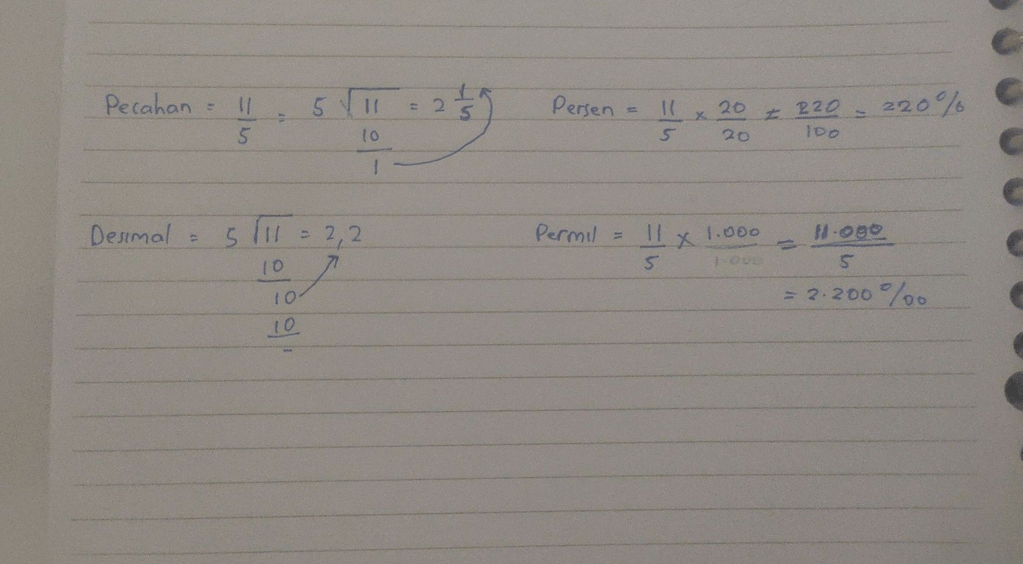 Pecahan = 11/5 = 5 √11 = 2 1/5
10
1
Persen = 11/5 × 20/20 = 220/100 = 220%
Desimal = 5 √11 = 2,2
10
10
10
-
Permil = 11/5 × 1.000/1.000 = 11.000/5
= 2.200 ‰